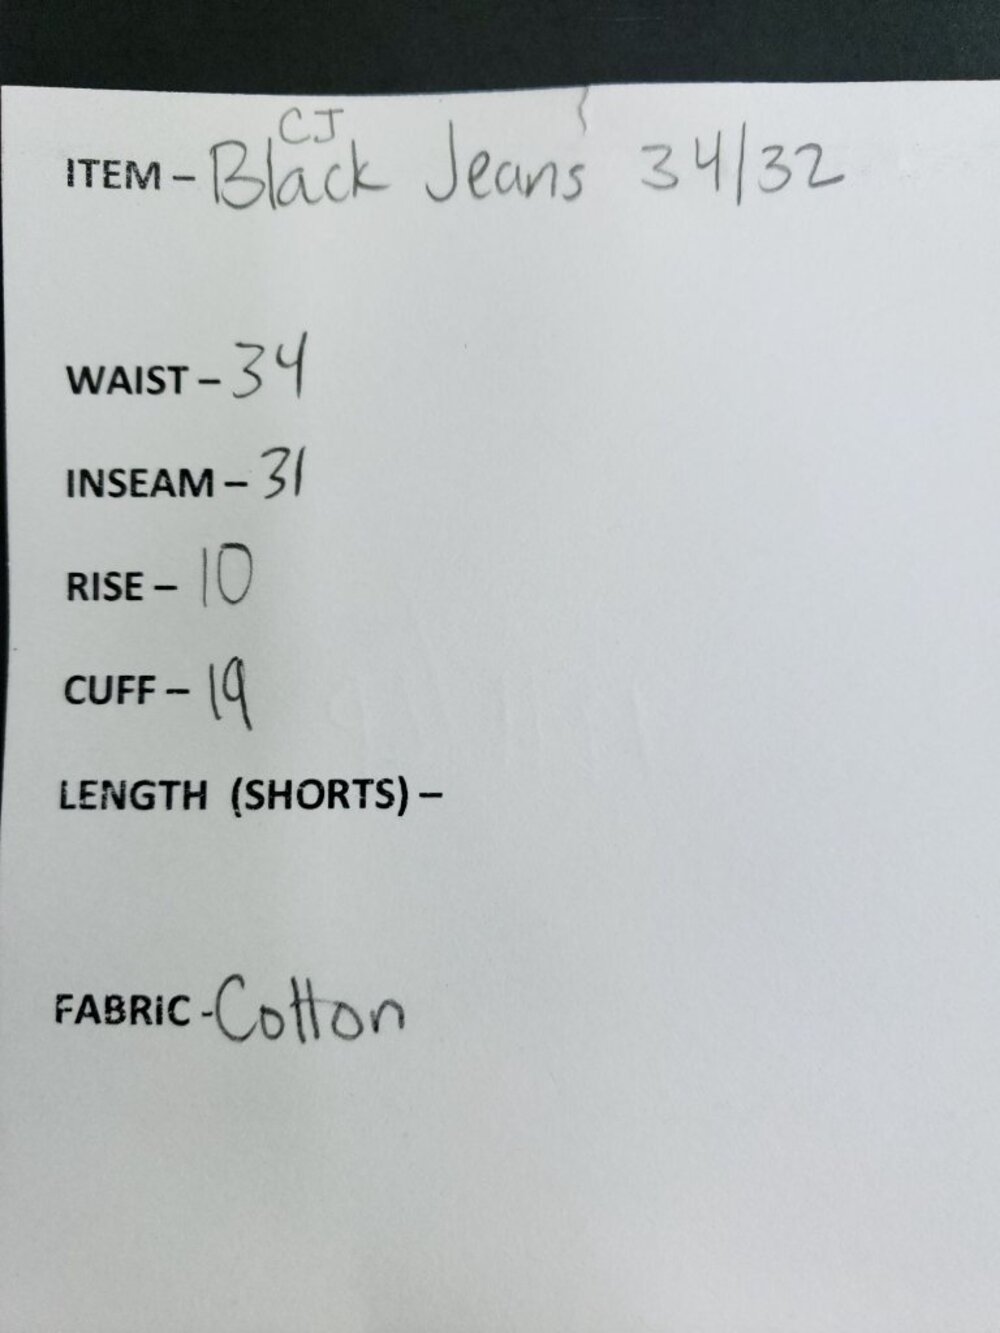 CJ
ITEM – Black Jeans 34/32
WAIST – 34
INSEAM – 31
RISE – 10
CUFF – 19
LENGTH (SHORTS) –
FABRIC - Cotton